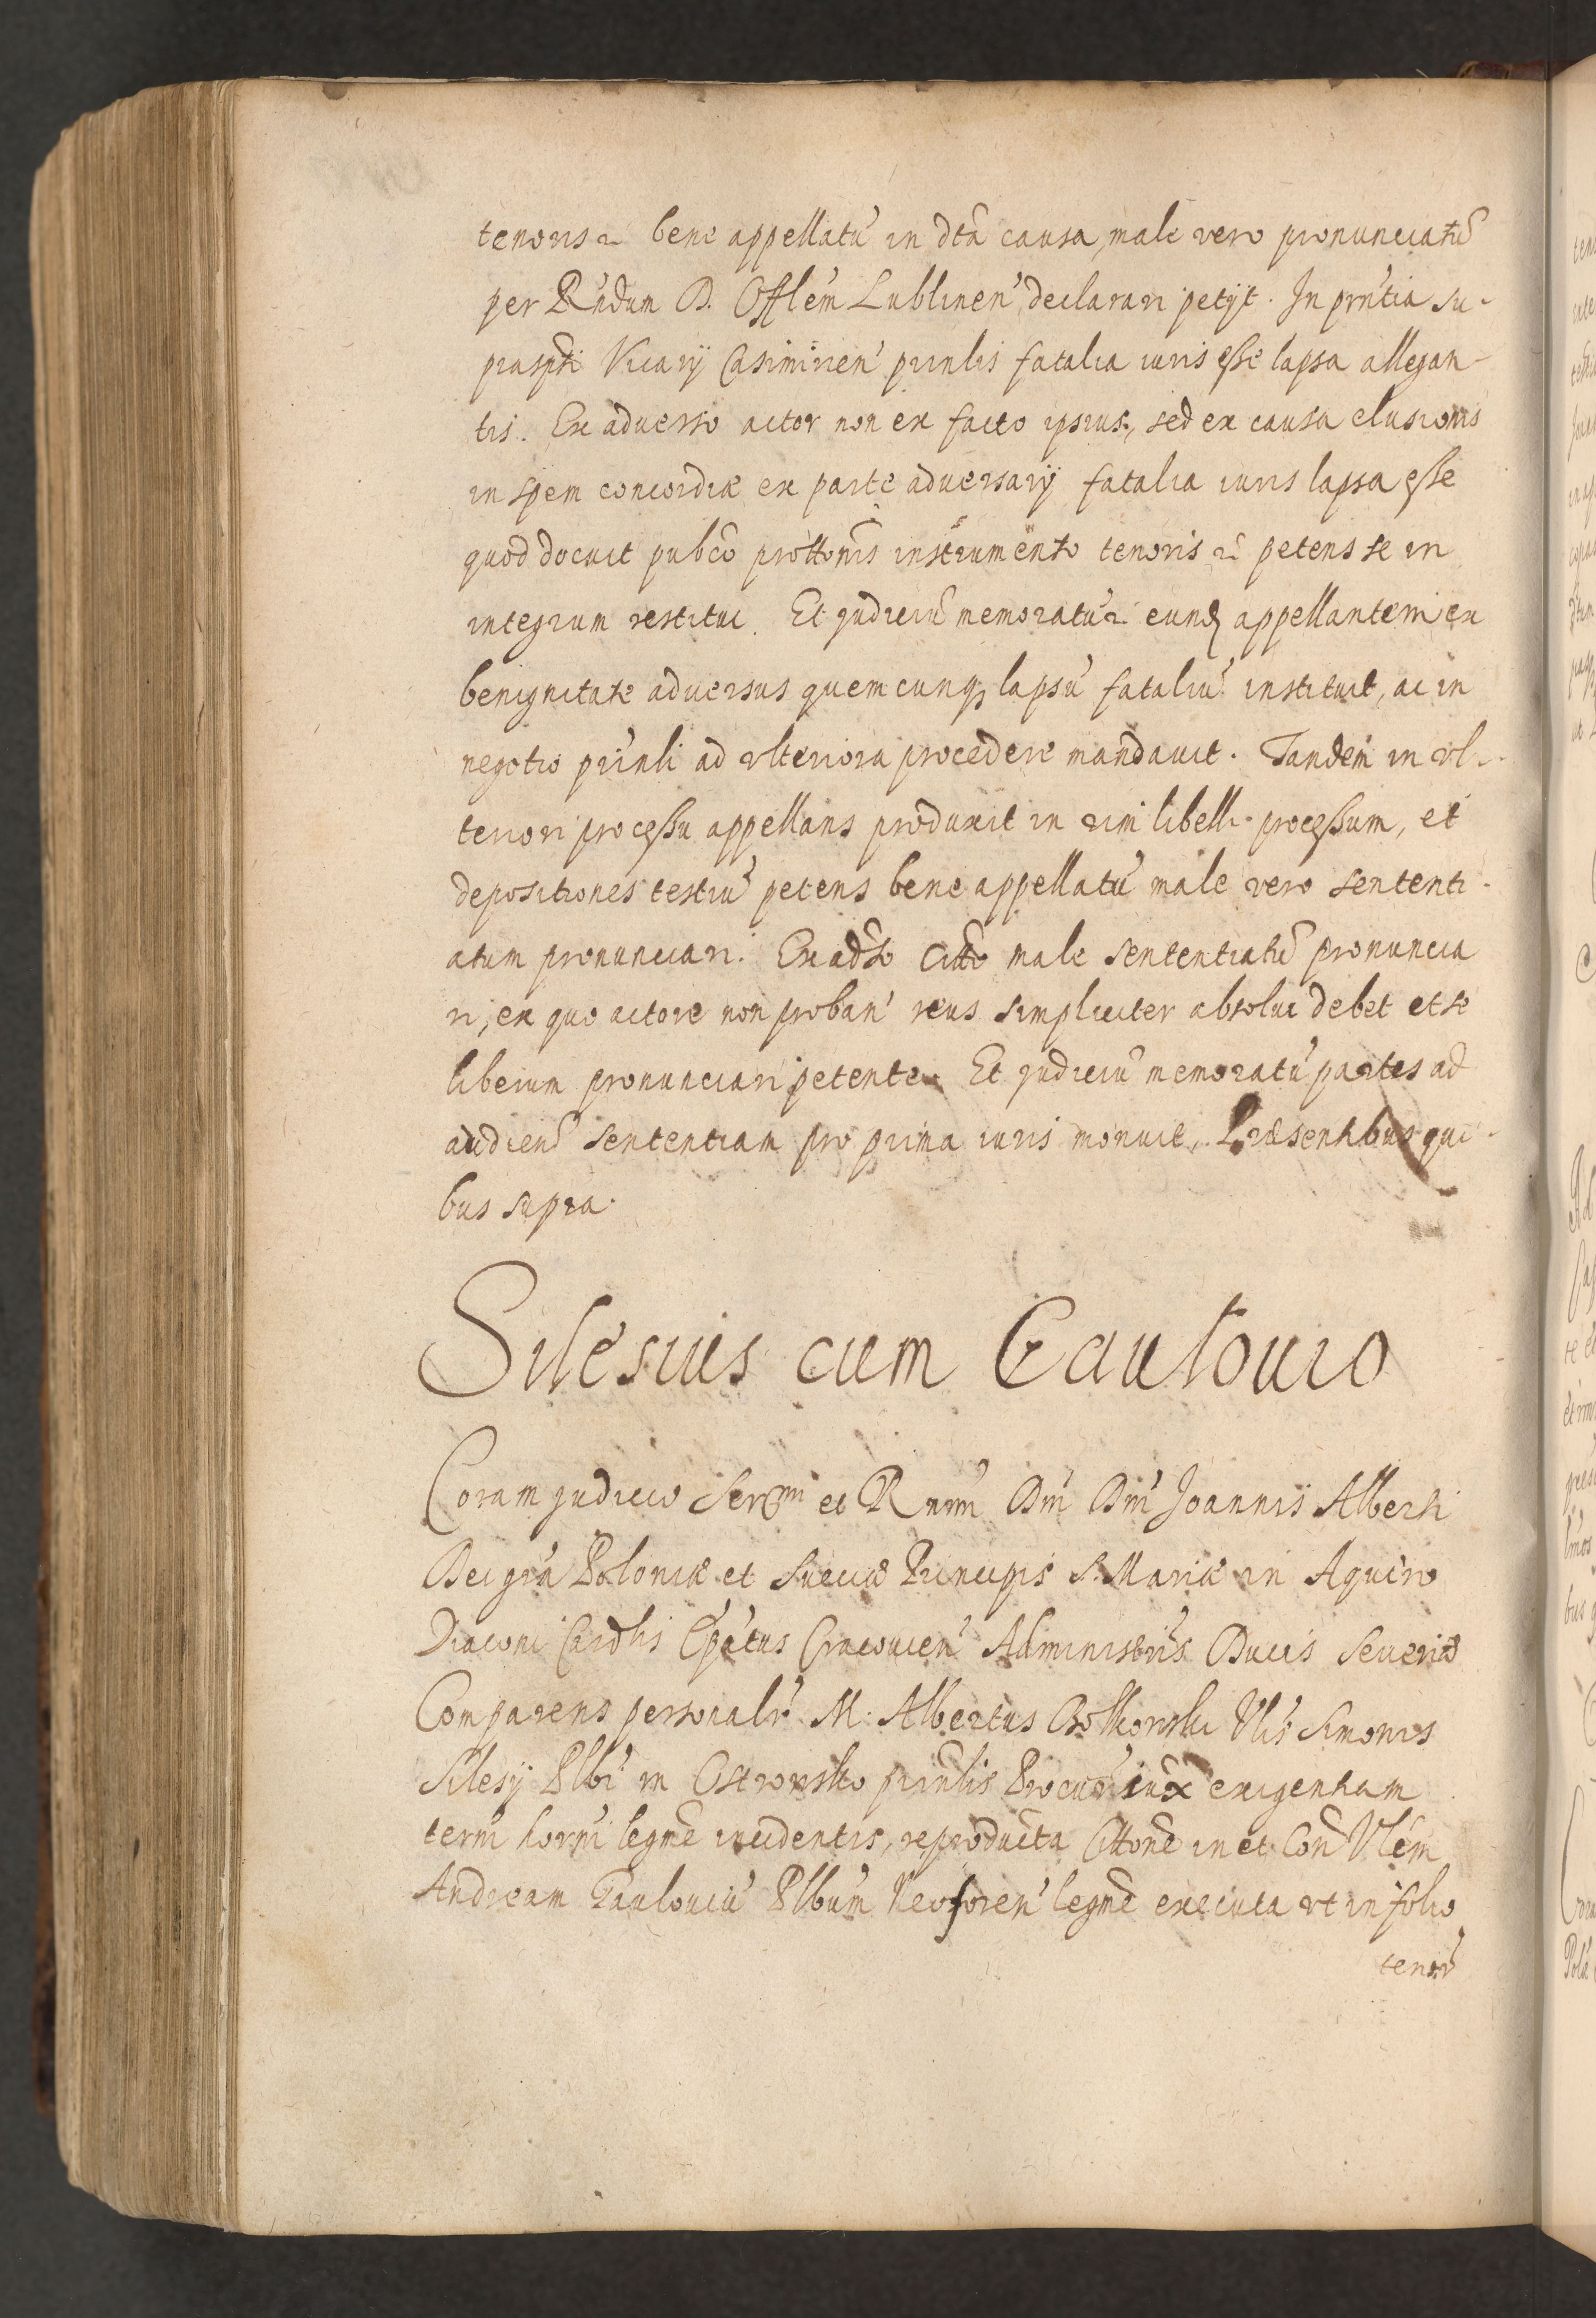 tenoris ꝛ bene appellatu' in dta causa, male vero pronunciatu
per Rndum D. Offlem Lublinen' declarari petijt. In prn'tia su-
praspti Vicarij Casimirien' prinlis fatalia iuris esse lapsa allegan-
tis. Ex aduerso actor non ex facto ipsius, sed ex causa elusionis
in spem concordiæ ex parte aduersarij fatalia iuris lapsa esse
quod docuit pubco prottonis instrumento tenoris ꝛ petens se in
integrum restitui. Et Judiciu memoratu' ꝛ eundꝫ appellantem ex
benignitate aduersus quemcunqꝫ lapsu' fataliu' instituit, ac in
negotio prinli ad vlteriora procedere mandauit. Tandem in vl-
teriori processu appellans produxit in vim libelli processum, et
depositiones testiu' petens bene appellatu' male vero sententi-
atum pronunciari. Ex adso Citto male sententiatu pronuncia
ri, ex quo actore non proban' reus simpliciter absolui debet et se
liberum pronunciari petente. Et Judiciu memoratu' partes ad
audien sententiam pro prima iuris monuit. Præsentibus qui-
bus supra.
Silesius cum Gaulouio
Coram Judicio Sermi et R nmi Dni Dni Joannis Alberti
Dei gra' Poloniæ et Sueciæ Principis S. Mariæ in Aquiro
Diaconi Cardlis Epatus Cracouien' Administris Ducis Seueriæ
Comparens personalr M. Albertus Bolkowski Vlis Simonis
Silesij Plbi in Ostrowsko prinlis Procur iux exigentiam
termi horni legme incidentis, reproducta Cittone in et Con Vlem
Andream Gaulouiu' Plbum Neoforen' legme executa vt in folio
tenor